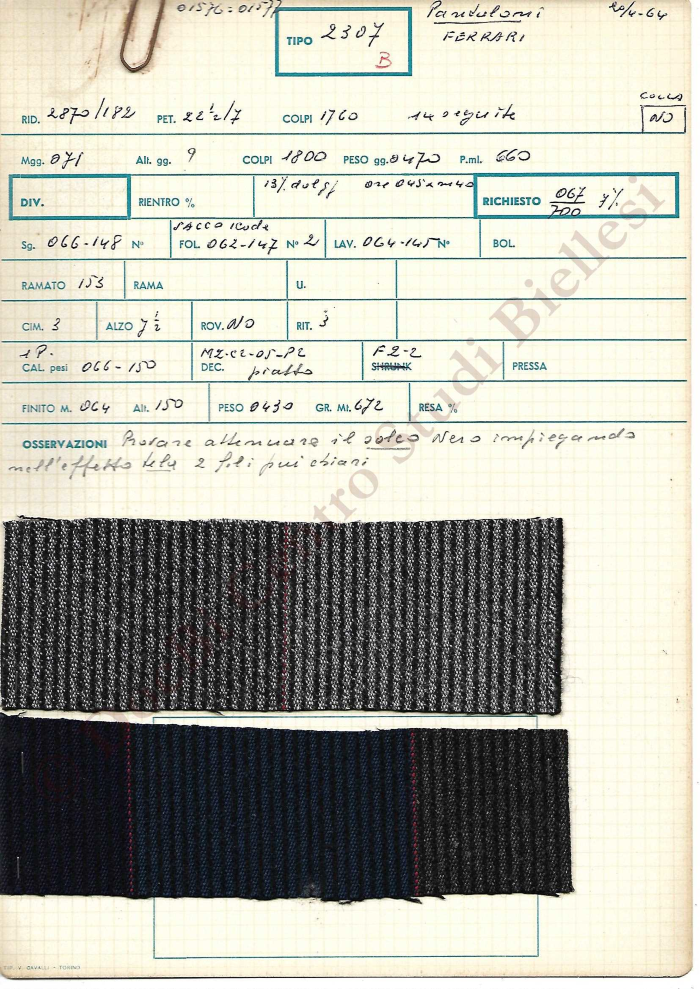 01576=01577
Pantaloni
20/4-64
TIPO 2307
FERRARI
B
COLLA
RID. 2870/182 PET. 22 1/2/7 COLPI 1760 14 seguite NO
Mgg. 071 Alt. gg. 9 COLPI 1800 PESO gg. 0470 P.ml. 660
DIV. RIENTRO % 13% dal gg RICHIESTO 067/700 7%
SACCO
Sg. 066-148 N° FOL. 062-147 N° 2 LAV. 064-145 N° BOL.
RAMATO 153 RAMA U.
CIM. 3 ALZO 7 1/2 ROV. NO RIT. 3
1P. MZ-C2-05-P2 F2-2
CAL. pesi 066-150 DEC. piatto SHRUNK PRESSA
FINITO M. 064 Alt. 150 PESO 0430 GR. Mt. 672 RESA %
OSSERVAZIONI Provare attenuare il solco Nero impiegando
nell'effetto tela 2 fili più chiari
Centro Studi Biellesi
TIP. V. CAVALLI - TORINO